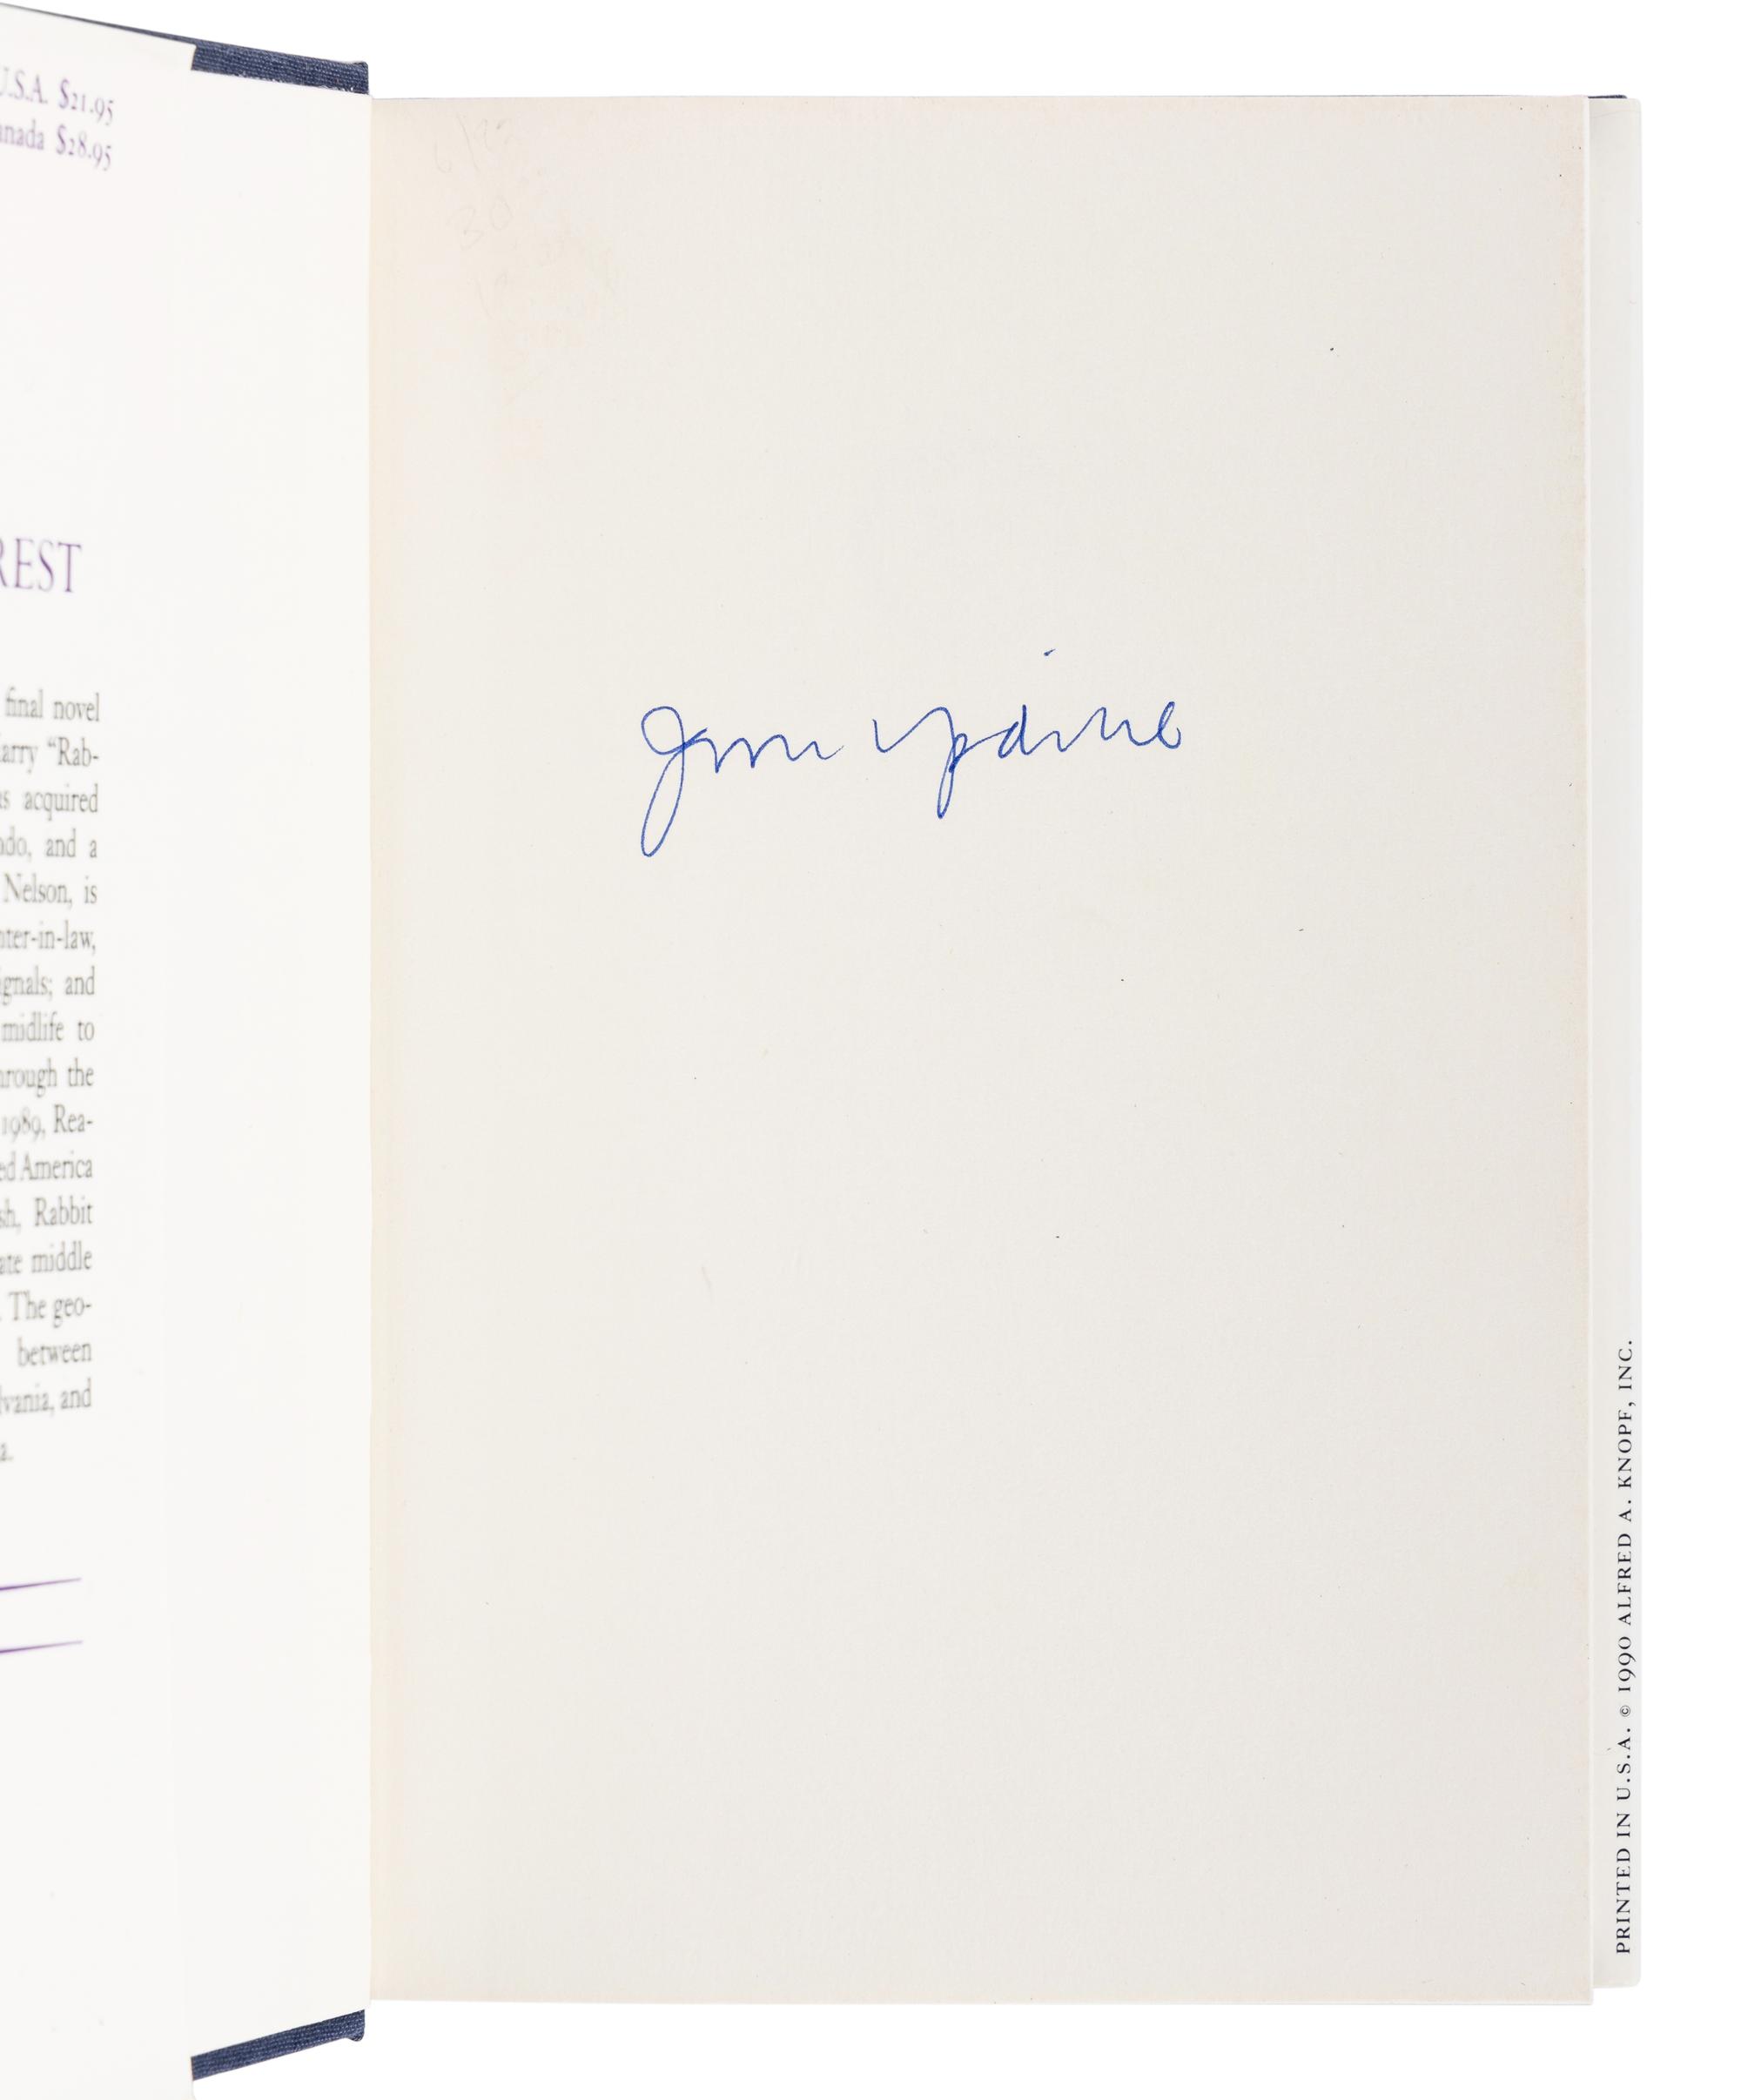 U.S.A. $21.95
anada $28.95
REST
final novel
arry “Rab-
as acquired
ado, and a
Nelson, is
hter-in-law,
ignals; and
midlife to
hrough the
1989, Rea-
ed America
sh, Rabbit
ate middle
. The geo-
between
lvania, and
a.
30
John Updike
PRINTED IN U.S.A. © 1990 ALFRED A. KNOPF, INC.